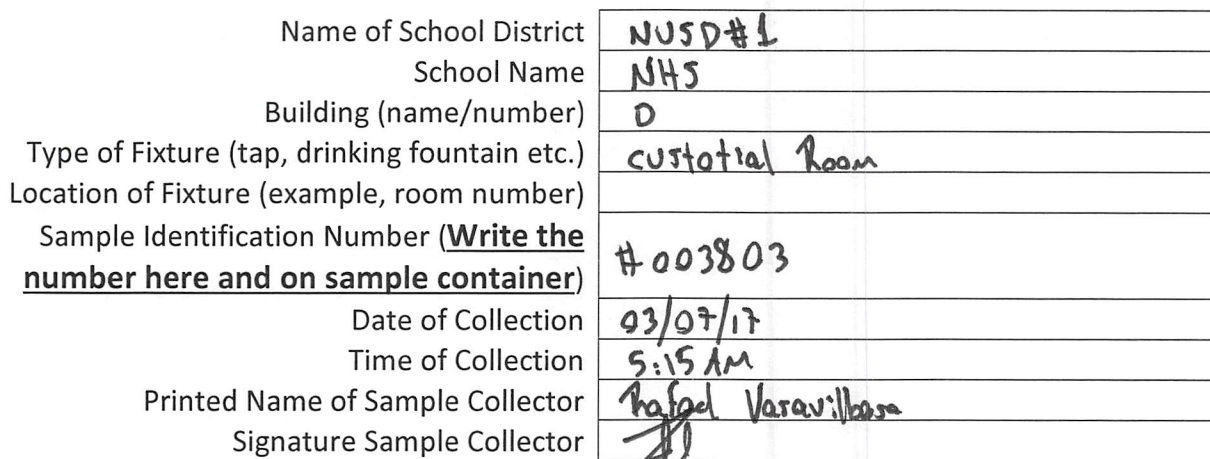 Name of School District NUSD#1
School Name NHS
Building (name/number) D
Type of Fixture (tap, drinking fountain etc.) custotial Room
Location of Fixture (example, room number)
Sample Identification Number (Write the
number here and on sample container) #003803
Date of Collection 03/07/17
Time of Collection 5:15 AM
Printed Name of Sample Collector Rafael
Signature Sample Collector